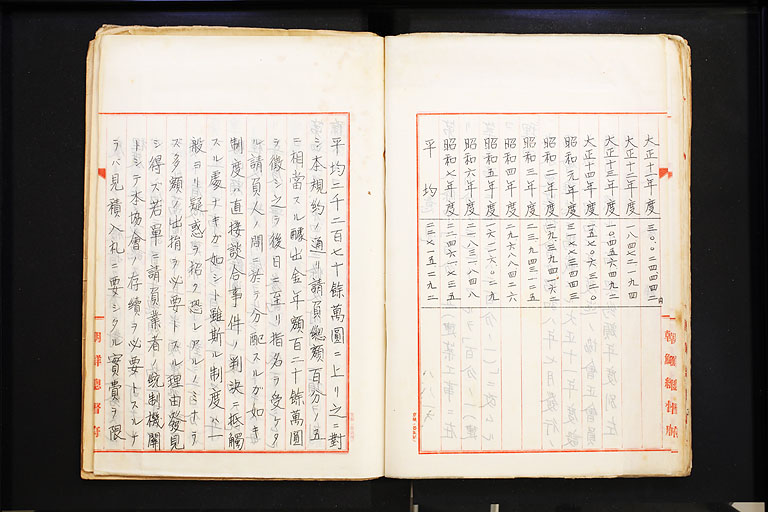 大正十一年度 三〇〇二四四四二円
大正十二年度 一八四七二一九四
大正十三年度 一〇四五六四二九
大正十四年度 一五七〇六三二〇
昭和元年度 三一八七三四三三
昭和二年度 二九三九四一六二
昭和三年度 二三九四三一二五
昭和四年度 二九六八八四二六
昭和五年度 一六二一六〇二九
昭和六年度 二一八三一八四八
昭和七年度 二二四六一七三五
平均 二二七一五二九二
朝鮮總督府
平均二千二百七十餘萬圓ニ上リ之ニ對
シ本規約ノ通リ請負總額百分ノ五
ニ相當スル醵出金年額百二十餘萬圓
ヲ徴シ之ヲ後日ニ至リ指名ヲ受ケタ
ル請負人ノ間ニ於テ分配スルガ如キ
制度ハ直接談合事件ノ判決ニ抵觸
スル處ナキガ如シト雖斯ル制度ハ一
般ヨリ疑惑ヲ招ク恐レアルノミナラ
ズ多額ノ出捐ヲ必要トスル理由發見
シ得ズ若單ニ請負業者ノ統制機關
トシテ本協會ノ存續ヲ必要トスルナ
ラバ見積入札ニ要シタル實費ヲ限
朝鮮總督府